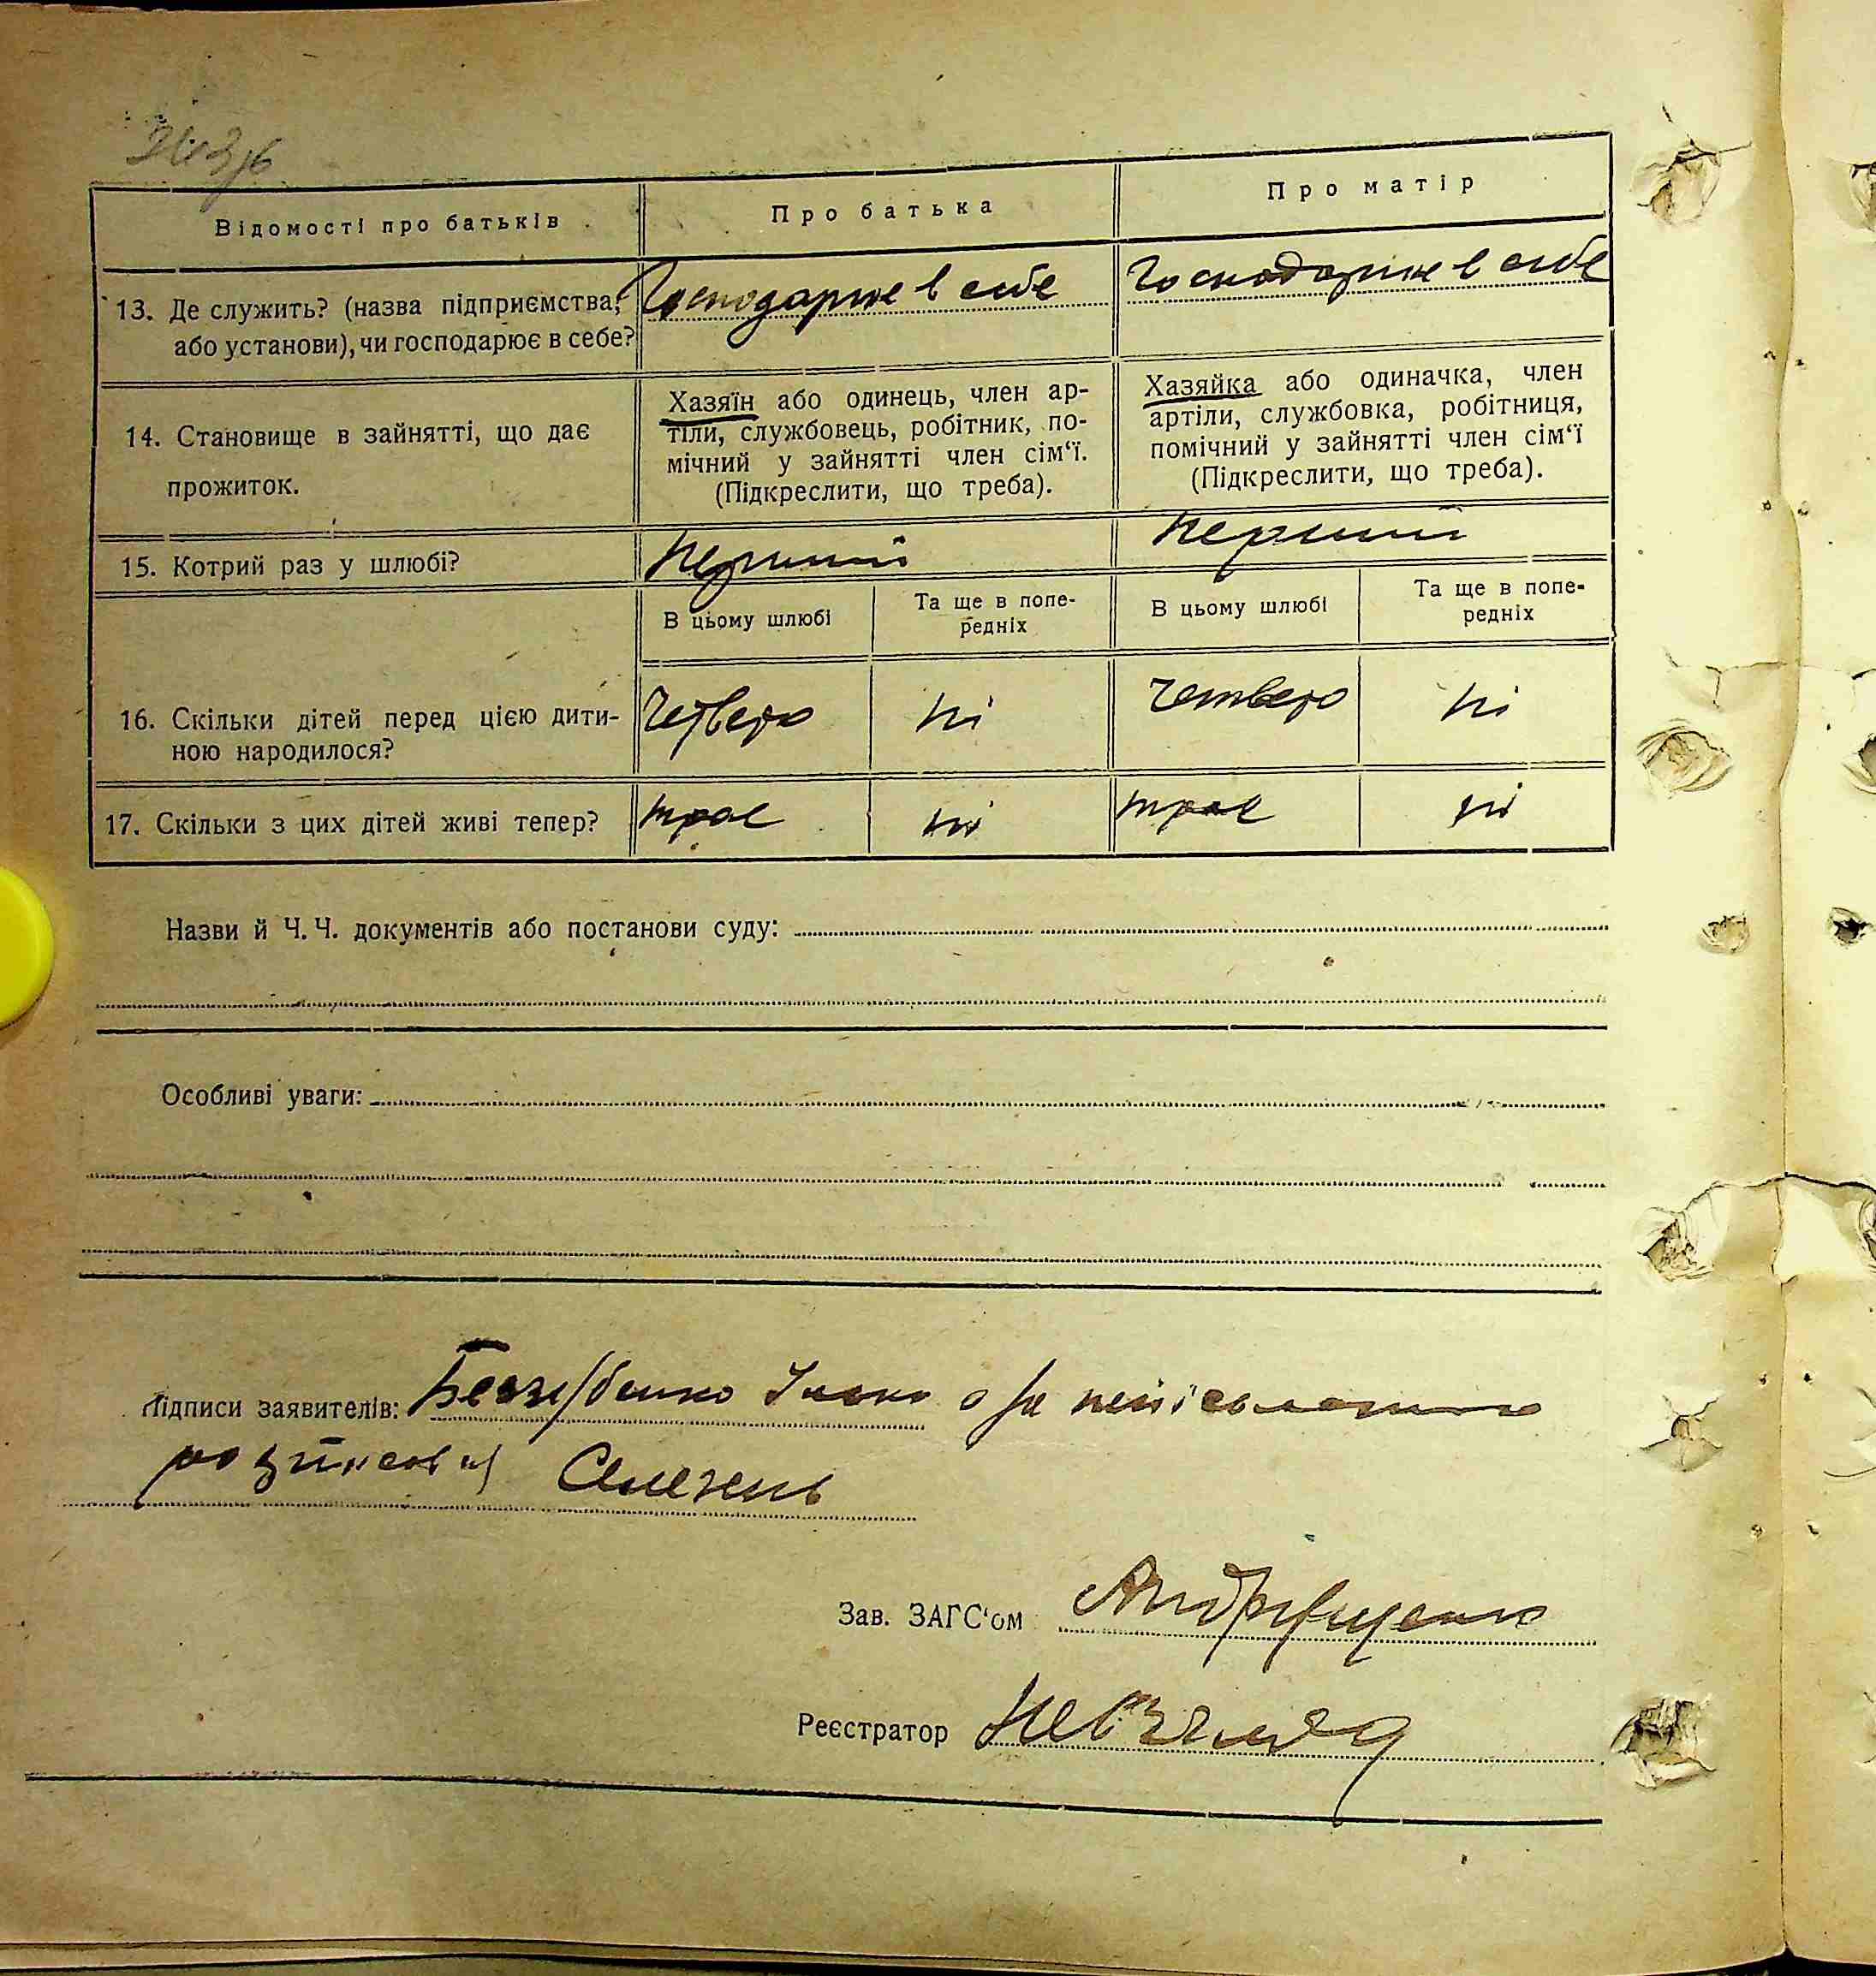 Відомості про батьків
Про батька
Про матір
13. Де служить? (назва підприємства, або установи), чи господарює в себе?
Господарює в себе
Господарює в себе
14. Становище в зайнятті, що дає
прожиток.
Хазяїн або одинець, член ар-
тіли, службовець, робітник, по-
мічний у зайнятті член сім‘ї.
(Підкреслити, що треба).
Хазяйка або одиначка, член
артіли, службовка, робітниця,
помічний у зайнятті член сім‘ї
(Підкреслити, що треба).
15. Котрий раз у шлюбі?
перший
перший
В цьому шлюбі
Та ще в попе-
редніх
В цьому шлюбі
Та ще в попе-
редніх
16. Скільки дітей перед цією дити-
ною народилося?
Четверо
ні
Четверо
ні
17. Скільки з цих дітей живі тепер?
троє
ні
троє
ні
Назви й Ч. Ч. документів або постанови суду:
Особливі уваги:
Підписи заявителів:
розписався
Зав. ЗАГС‘ом Андрющенко
Реєстратор